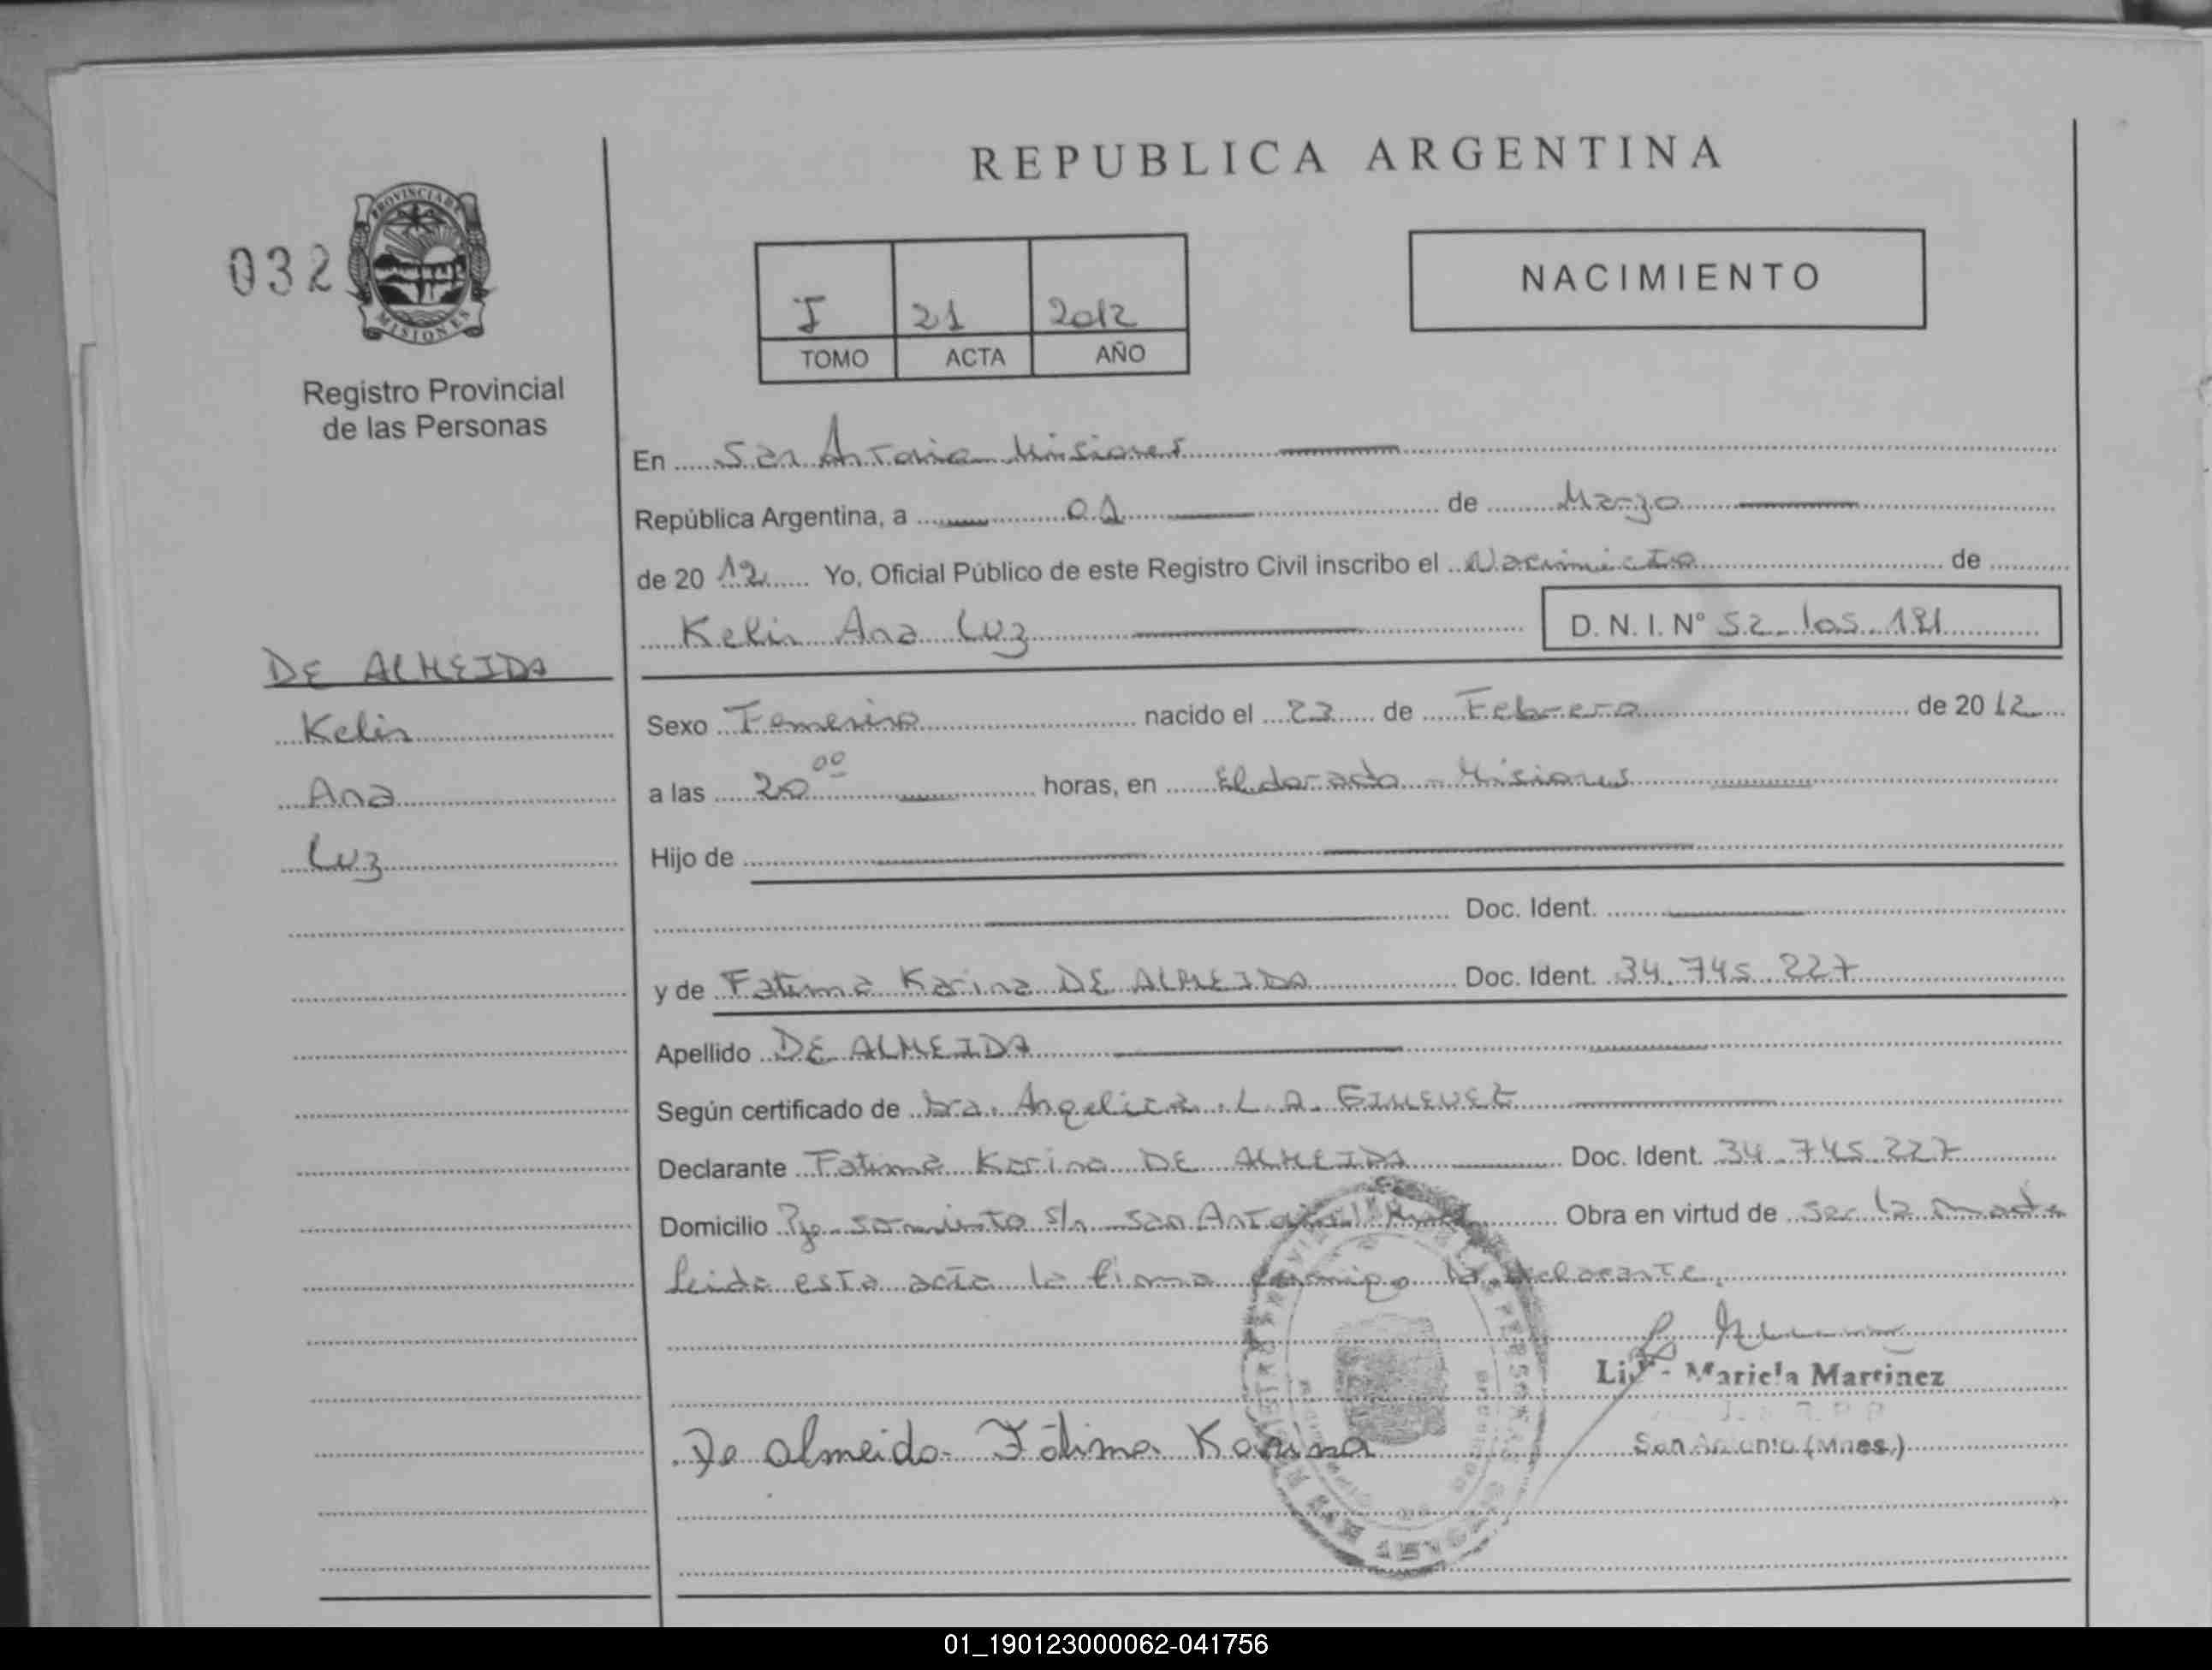 REPUBLICA ARGENTINA
032
PROVINCIA DE
MISIONES
Registro Provincial
de las Personas
I 21 2012
TOMO ACTA AÑO
NACIMIENTO
En San Antonio Misiones
República Argentina, a 01 de Marzo
de 2012 Yo, Oficial Público de este Registro Civil inscribo el Nacimiento de
Kelin Ana Luz D. N. I. Nº 52.105.181
DE ALMEIDA
Kelin
Ana
Luz
Sexo Femenino nacido el 23 de Febrero de 2012
a las 20 00 horas, en Eldorado - Misiones
Hijo de
Doc. Ident.
y de Fatima Karina DE ALMEIDA Doc. Ident. 34.745.227
Apellido DE ALMEIDA
Según certificado de Dra. Angelica L. A. GIMENEZ
Declarante Fatima Karina DE ALMEIDA Doc. Ident. 34.745.227
Domicilio Pje Sarmiento s/n San Antonio Obra en virtud de ser la madre
leida esta acta la firma conmigo la declarante.
Lic. Mariela Martinez
San Antonio (Mnes.)
De Almeida Fátima Karina
01_190123000062-041756